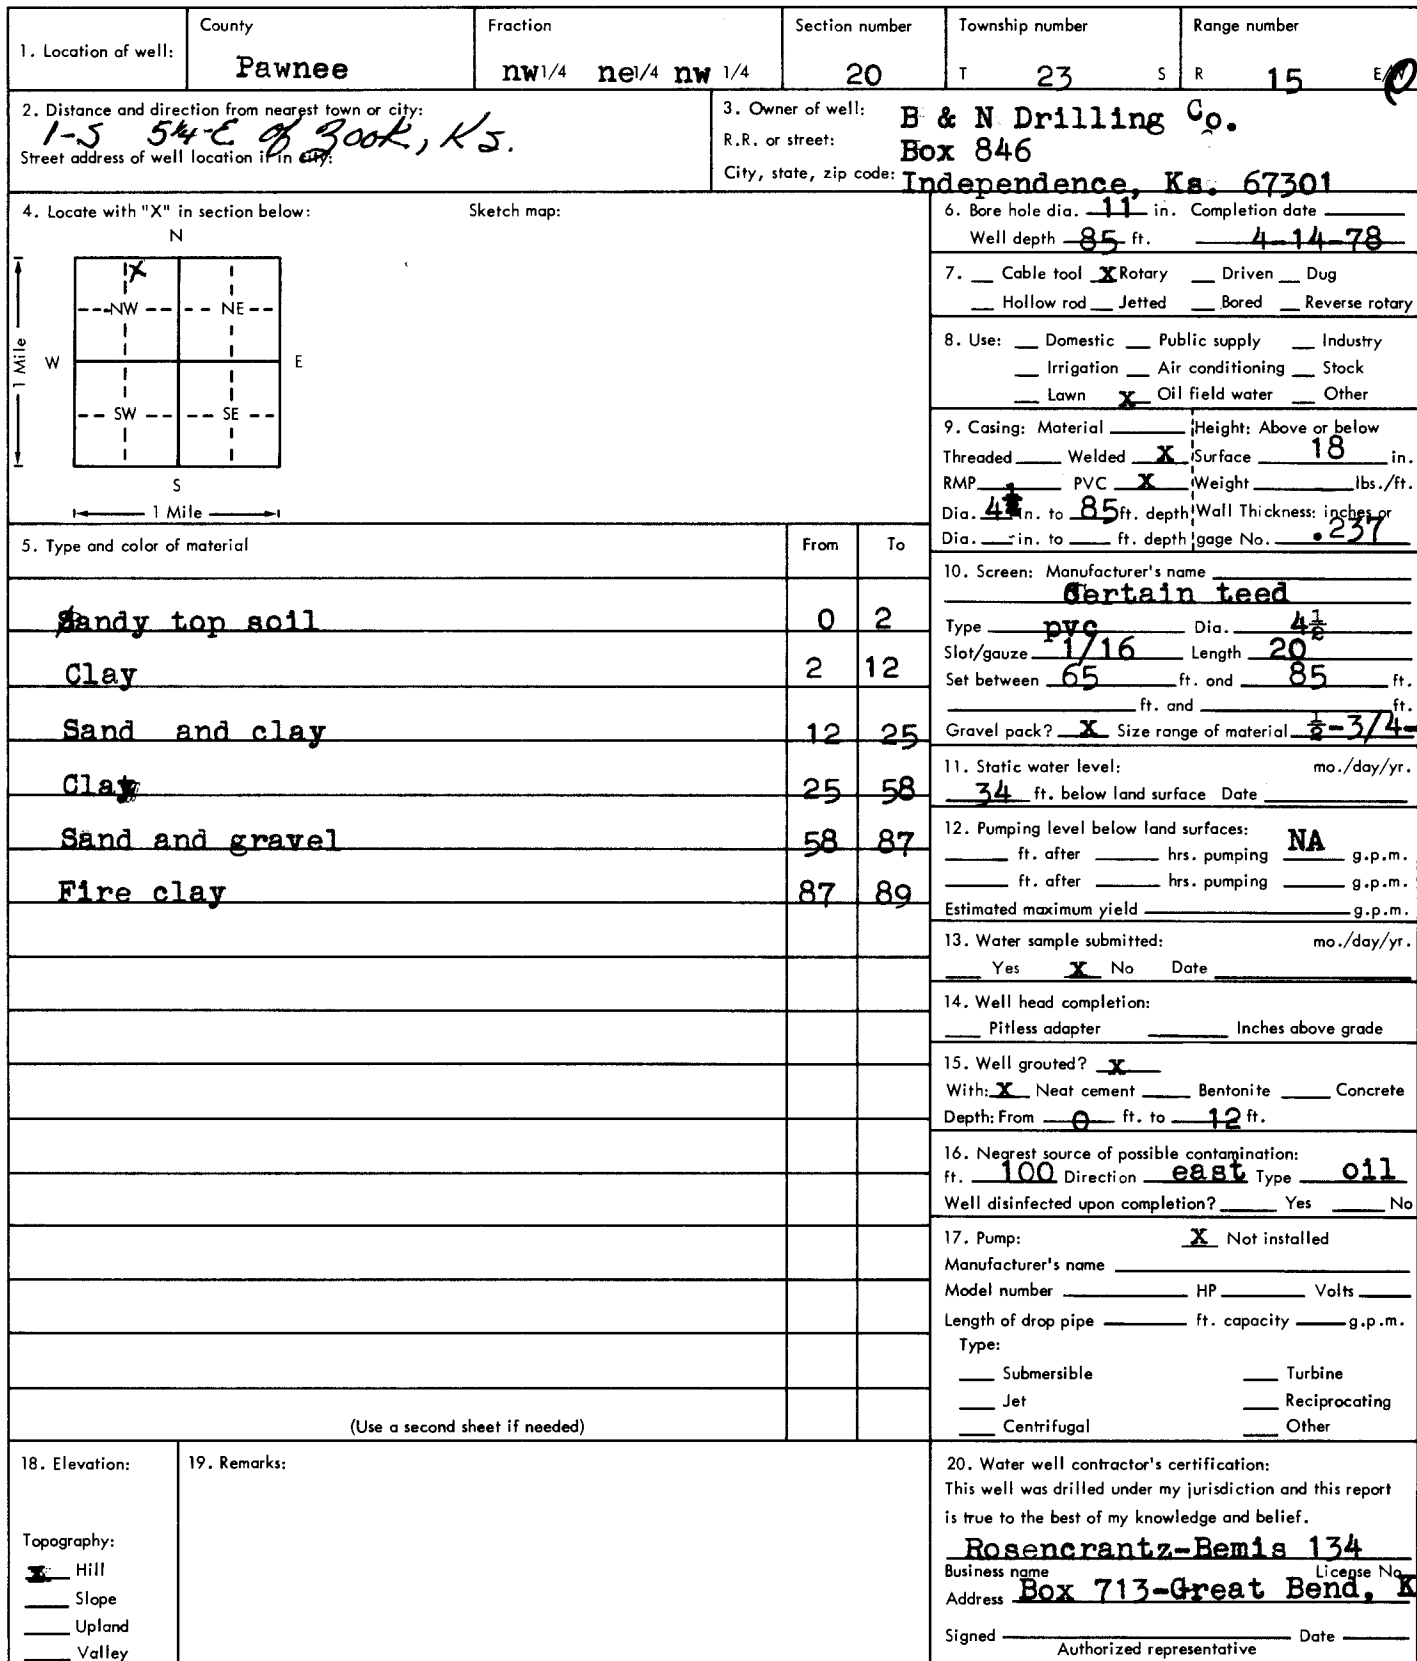 1. Location of well:
County
Pawnee
Fraction
nw 1/4 ne 1/4 nw 1/4
Section number
20
Township number
T 23 S
Range number
R 15 E/W
2. Distance and direction from nearest town or city:
1-S 5¼-E of Zook, Ks.
Street address of well location if in city:
3. Owner of well: B & N Drilling Co.
R.R. or street: Box 846
City, state, zip code: Independence, Ks. 67301
4. Locate with "X" in section below:
Sketch map:
N
X
NW NE
W E
1 Mile
SW SE
S
1 Mile
5. Type and color of material From To
Sandy top soil 0 2
Clay 2 12
Sand and clay 12 25
Clay 25 58
Sand and gravel 58 87
Fire clay 87 89
(Use a second sheet if needed)
6. Bore hole dia. 11 in. Completion date
Well depth 85 ft. 4-14-78
7. Cable tool X Rotary Driven Dug
Hollow rod Jetted Bored Reverse rotary
8. Use: Domestic Public supply Industry
Irrigation Air conditioning Stock
Lawn X Oil field water Other
9. Casing: Material Height: Above or below
Threaded Welded X Surface 18 in.
RMP PVC X Weight lbs./ft.
Dia. 4½ in. to 85 ft. depth Wall Thickness: inches or
Dia. in. to ft. depth gage No. .237
10. Screen: Manufacturer's name
Certain teed
Type pvc Dia. 4½
Slot/gauze 1/16 Length 20
Set between 65 ft. and 85 ft.
ft. and ft.
Gravel pack? X Size range of material ½-3/4-
11. Static water level: mo./day/yr.
34 ft. below land surface Date
12. Pumping level below land surfaces: NA
ft. after hrs. pumping g.p.m.
ft. after hrs. pumping g.p.m.
Estimated maximum yield g.p.m.
13. Water sample submitted: mo./day/yr.
Yes X No Date
14. Well head completion:
Pitless adapter Inches above grade
15. Well grouted? X
With: X Neat cement Bentonite Concrete
Depth: From 0 ft. to 12 ft.
16. Nearest source of possible contamination:
ft. 100 Direction east Type oil
Well disinfected upon completion? Yes No
17. Pump: X Not installed
Manufacturer's name
Model number HP Volts
Length of drop pipe ft. capacity g.p.m.
Type:
Submersible Turbine
Jet Reciprocating
Centrifugal Other
18. Elevation:
Topography:
X Hill
Slope
Upland
Valley
19. Remarks:
20. Water well contractor's certification:
This well was drilled under my jurisdiction and this report
is true to the best of my knowledge and belief.
Rosencrantz-Bemis 134
Business name License No.
Address Box 713-Great Bend, K
Signed Date
Authorized representative